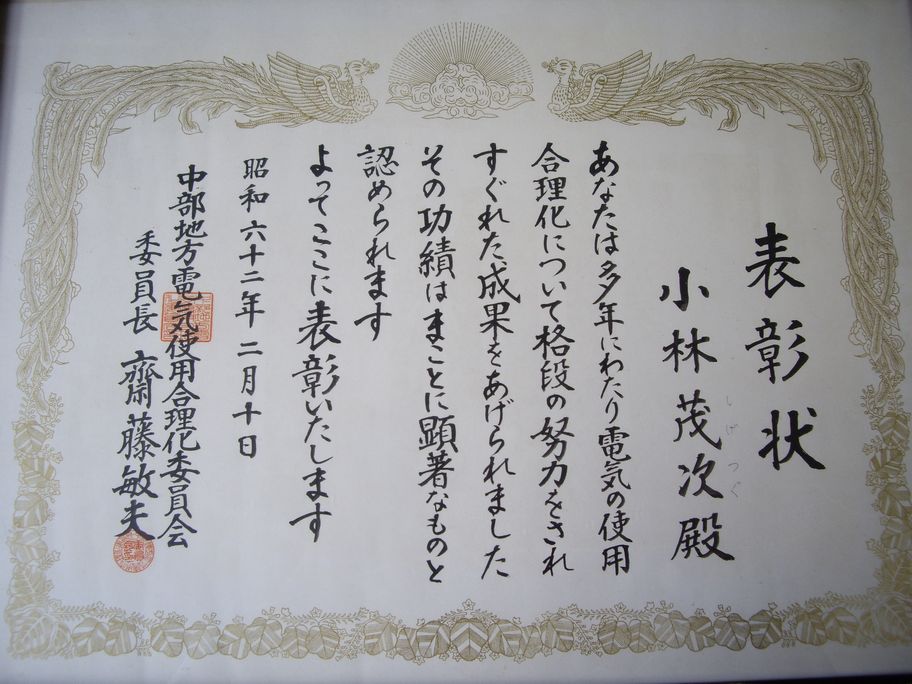 表彰状
小林茂次殿
しげつぐ
あなたは多年にわたり電気の使用
合理化について格段の努力をされ
すぐれた成果をあげられました
その功績はまことに顕著なものと
認められます
よってここに表彰いたします
昭和六十二年二月十日
中部地方電気使用合理化委員会
委員長 齋藤敏夫